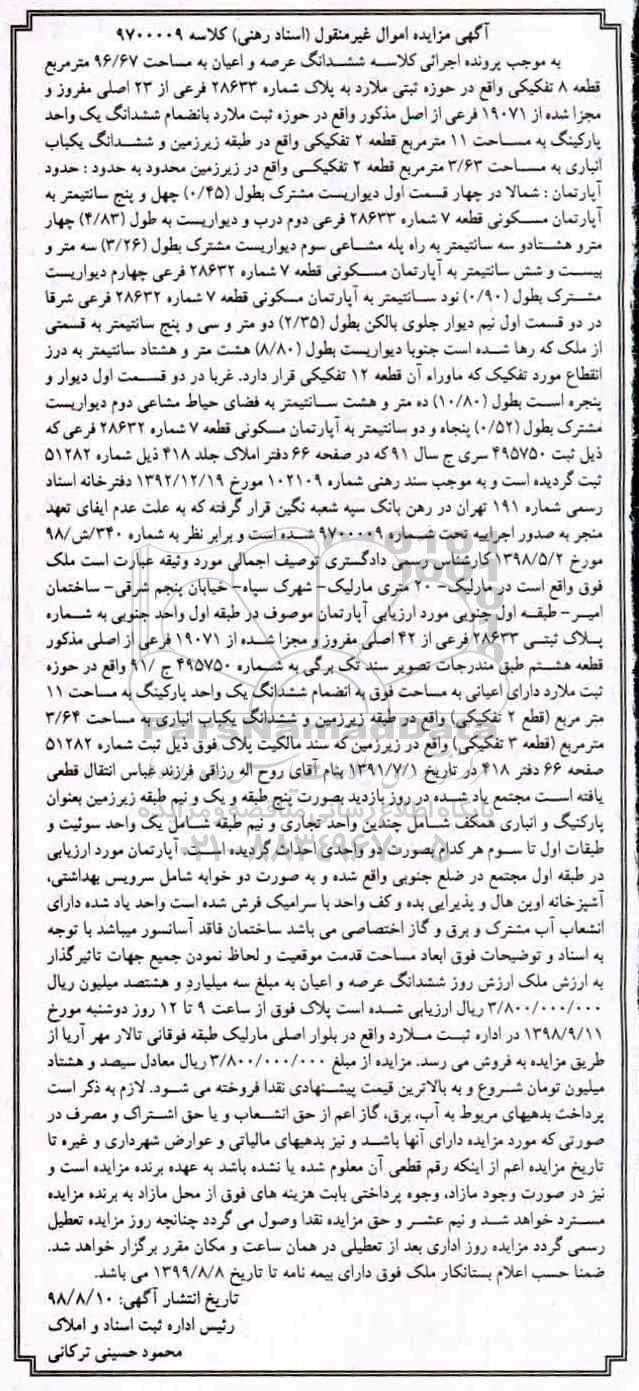 آگهی مزایده اموال غیرمنقول (اسناد رهنی) کلاسه ۹۷۰۰۰۰۹
به موجب پرونده اجرائی کلاسه ششدانگ عرصه و اعیان به مساحت ۹۶/۶۷ مترمربع
قطعه ۸ تفکیکی واقع در حوزه ثبتی ملارد به پلاک شماره ۲۸۶۳۳ فرعی از ۲۳ اصلی مفروز و
مجزا شده از ۱۹۰۷۱ فرعی از اصل مذکور واقع در حوزه ثبت ملارد بانضمام ششدانگ یک واحد
پارکینگ به مساحت ۱۱ مترمربع قطعه ۲ تفکیکی واقع در طبقه زیرزمین و ششدانگ یکباب
انباری به مساحت ۳/۶۳ مترمربع قطعه ۲ تفکیکی واقع در زیرزمین محدود به حدود : حدود
آپارتمان : شمالا در چهار قسمت اول دیواریست مشترک بطول (۰/۴۵) چهل و پنج سانتیمتر به
آپارتمان مسکونی قطعه ۷ شماره ۲۸۶۳۳ فرعی دوم درب و دیواریست به طول (۴/۸۳) چهار
مترو هشتادو سه سانتیمتر به راه پله مشاعی سوم دیواریست مشترک بطول (۳/۲۶) سه متر و
بیست و شش سانتیمتر به آپارتمان مسکونی قطعه ۷ شماره ۲۸۶۳۲ فرعی چهارم دیواریست
مشترک بطول (۰/۹۰) نود سانتیمتر به آپارتمان مسکونی قطعه ۷ شماره ۲۸۶۳۲ فرعی شرقا
در دو قسمت اول نیم دیوار جلوی بالکن بطول (۲/۳۵) دو متر و سی و پنج سانتیمتر به قسمتی
از ملک که رها شده است جنوبا دیواریست بطول (۸/۸۰) هشت متر و هشتاد سانتیمتر به درز
انقطاع مورد تفکیک که ماوراء آن قطعه ۱۲ تفکیکی قرار دارد. غربا در دو قسمت اول دیوار و
پنجره است بطول (۱۰/۸۰) ده متر و هشت سانتیمتر به فضای حیاط مشاعی دوم دیواریست
مشترک بطول (۰/۵۲) پنجاه و دو سانتیمتر به آپارتمان مسکونی قطعه ۷ شماره ۲۸۶۳۲ فرعی که
ذیل ثبت ۴۹۵۷۵۰ سری ج سال ۹۱ که در صفحه ۶۶ دفتر املاک جلد ۴۱۸ ذیل شماره ۵۱۲۸۲
ثبت گردیده است و به موجب سند رهنی شماره ۱۰۲۱۰۹ مورخ ۱۳۹۲/۱۲/۱۹ دفترخانه اسناد
رسمی شماره ۱۹۱ تهران در رهن بانک سپه شعبه نگین قرار گرفته که به علت عدم ایفای تعهد
منجر به صدور اجراییه تحت شماره ۹۷۰۰۰۰۹ شده است و برابر نظر به شماره ۳۴۰/ش/۹۸
مورخ ۱۳۹۸/۵/۲ کارشناس رسمی دادگستری توصیف اجمالی مورد وثیقه عبارت است ملک
فوق واقع است در مارلیک- ۲۰ متری مارلیک- شهرک سپاه- خیابان پنجم شرقی- ساختمان
امیر- طبقه اول جنوبی مورد ارزیابی آپارتمان موصوف در طبقه اول واحد جنوبی به شماره
پلاک ثبتی ۲۸۶۳۳ فرعی از ۴۲ اصلی مفروز و مجزا شده از ۱۹۰۷۱ فرعی از اصلی مذکور
قطعه هشتم طبق مندرجات تصویر سند تک برگی به شماره ۴۹۵۷۵۰ ج /۹۱ واقع در حوزه
ثبت ملارد دارای اعیانی به مساحت فوق به انضمام ششدانگ یک واحد پارکینگ به مساحت ۱۱
متر مربع (قطع ۲ تفکیکی) واقع در طبقه زیرزمین و ششدانگ یکباب انباری به مساحت ۳/۶۴
مترمربع (قطعه ۳ تفکیکی) واقع در زیرزمین که سند مالکیت پلاک فوق ذیل ثبت شماره ۵۱۲۸۲
صفحه ۶۶ دفتر ۴۱۸ در تاریخ ۱۳۹۱/۷/۱ بنام آقای روح اله رزاقی فرزند عباس انتقال قطعی
یافته است مجتمع یاد شده در روز بازدید بصورت پنج طبقه و یک و نیم طبقه زیرزمین بعنوان
پارکتیگ و انباری همکف شامل چندین واحد تجاری و نیم طبقه شامل یک واحد سوئیت و
طبقات اول تا سوم هر کدام بصورت دو واحدی احداث گردیده است. آپارتمان مورد ارزیابی
در طبقه اول مجتمع در ضلع جنوبی واقع شده و به صورت دو خوابه شامل سرویس بهداشتی،
آشپزخانه اوپن هال و پذیرایی بده و کف واحد با سرامیک فرش شده است واحد یاد شده دارای
انشعاب آب مشترک و برق و گاز اختصاصی می باشد ساختمان فاقد آسانسور میباشد با توجه
به اسناد و توضیحات فوق ابعاد مساحت قدمت موقعیت و لحاظ نمودن جمیع جهات تاثیرگذار
به ارزش ملک ارزش روز ششدانگ عرصه و اعیان به مبلغ سه میلیارد و هشتصد میلیون ریال
۳/۸۰۰/۰۰۰/۰۰۰ ریال ارزیابی شده است پلاک فوق از ساعت ۹ تا ۱۲ روز دوشنبه مورخ
۱۳۹۸/۹/۱۱ در اداره ثبت ملارد واقع در بلوار اصلی مارلیک طبقه فوقانی تالار مهر آریا از
طریق مزایده به فروش می رسد. مزایده از مبلغ ۳/۸۰۰/۰۰۰/۰۰۰ ریال معادل سیصد و هشتاد
میلیون تومان شروع و به بالاترین قیمت پیشنهادی نقدا فروخته می شود. لازم به ذکر است
پرداخت بدهیهای مربوط به آب، برق، گاز اعم از حق انشعاب و یا حق اشتراک و مصرف در
صورتی که مورد مزایده دارای آنها باشد و نیز بدهیهای مالیاتی و عوارض شهرداری و غیره تا
تاریخ مزایده اعم از اینکه رقم قطعی آن معلوم شده یا نشده باشد به عهده برنده مزایده است و
نیز در صورت وجود مازاد، وجوه پرداختی بابت هزینه های فوق از محل مازاد به برنده مزایده
مسترد خواهد شد و نیم عشر و حق مزایده نقدا وصول می گردد چنانچه روز مزایده تعطیل
رسمی گردد مزایده روز اداری بعد از تعطیلی در همان ساعت و مکان مقرر برگزار خواهد شد.
ضمنا حسب اعلام بستانکار ملک فوق دارای بیمه نامه تا تاریخ ۱۳۹۹/۸/۸ می باشد.
تاریخ انتشار آگهی: ۹۸/۸/۱۰
رئیس اداره ثبت اسناد و املاک
محمود حسینی ترکانی
ParsNamadData
پایگاه اطلاع رسانی مناقصه و مزایده
۰۲۱-۸۸۳۴۹۶۷۰-۵